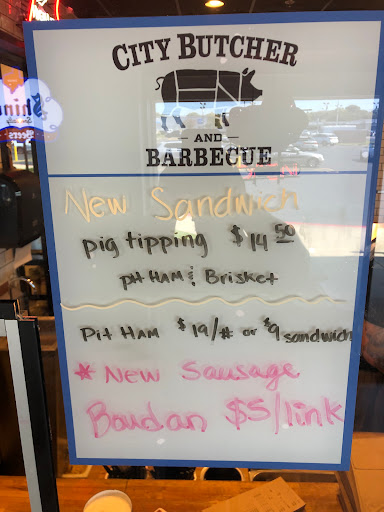 CITY BUTCHER
AND
BARBECUE
New Sandwich
pig tipping $14 50
pit HAM & Brisket
Pit HAM $19/# or $9 sandwich
* New Sausage
Boudan $5/link
Shiner
Beers